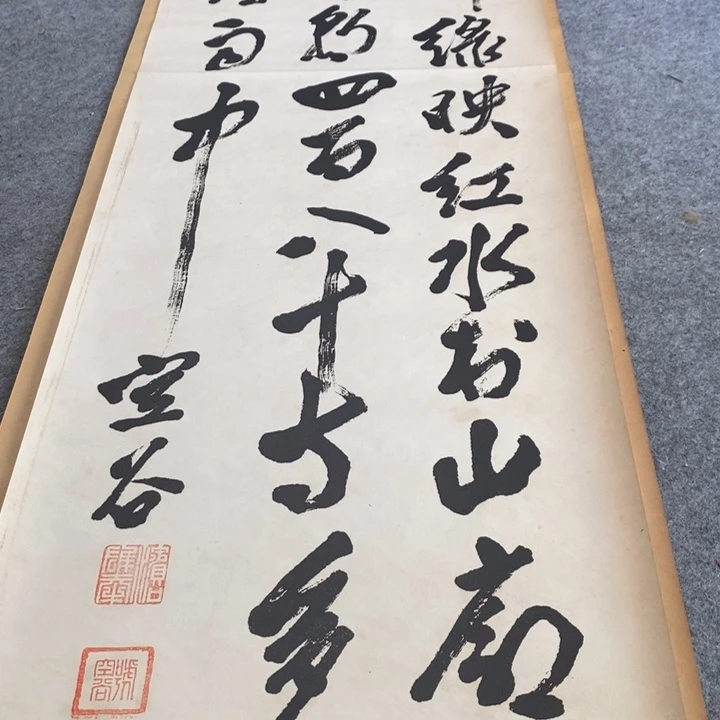 綠映紅水村山郭
朝四百八十寺多
雨中
空谷